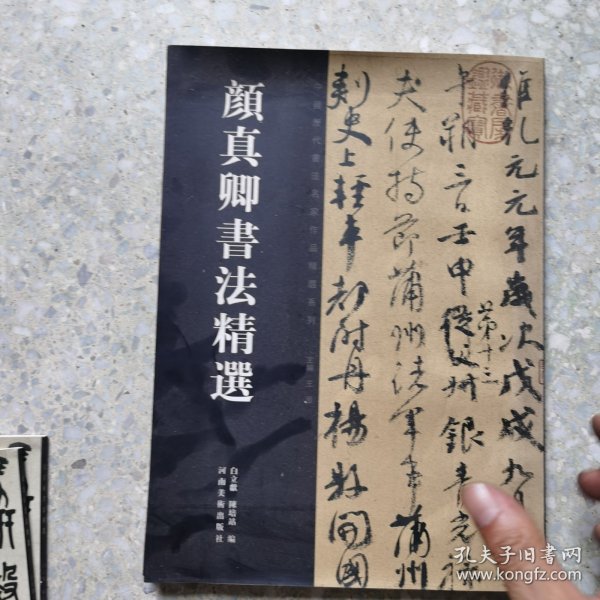 顔真卿書法精選
中國歷代書法名家作品精選系列
主編 王
白立獻 陳培站 編
河南美術出版社
維乾元元年歲次戊戌九
午朔三日壬申從父州銀青光祿
第十三
夫使持節蒲州諸軍事蒲州
刺史上輕車都尉丹楊縣開國
孔夫子旧书网
www.kongfz.com